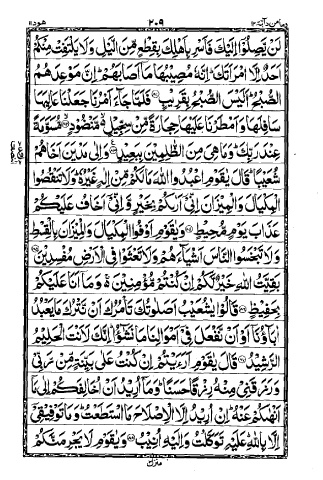 ومامن دآبة ١٢ ٢٠٩ هود ١١
لَنْ يَّصِلُوْٓا اِلَيْكَ فَاَسْرِ بِاَهْلِكَ بِقِطْعٍ مِّنَ الَّيْلِ وَلَا يَلْتَفِتْ مِنْكُمْ
اَحَدٌ اِلَّا امْرَاَتَكَ ؕ اِنَّهٗ مُصِيْبُهَا مَآ اَصَابَهُمْ ؕ اِنَّ مَوْعِدَهُمُ
الصُّبْحُ ؕ اَلَيْسَ الصُّبْحُ بِقَرِيْبٍ ۝ فَلَمَّا جَآءَ اَمْرُنَا جَعَلْنَا عَالِيَهَا
سَافِلَهَا وَاَمْطَرْنَا عَلَيْهَا حِجَارَةً مِّنْ سِجِّيْلٍ مَّنْضُوْدٍ ۝ مُّسَوَّمَةً
عِنْدَ رَبِّكَ ؕ وَمَا هِيَ مِنَ الظّٰلِمِيْنَ بِبَعِيْدٍ ۝ وَاِلٰى مَدْيَنَ اَخَاهُمْ
شُعَيْبًا ؕ قَالَ يٰقَوْمِ اعْبُدُوا اللّٰهَ مَا لَكُمْ مِّنْ اِلٰهٍ غَيْرُهٗ ؕ وَلَا تَنْقُصُوا
الْمِكْيَالَ وَالْمِيْزَانَ اِنِّيْٓ اَرٰىكُمْ بِخَيْرٍ وَّاِنِّيْٓ اَخَافُ عَلَيْكُمْ
عَذَابَ يَوْمٍ مُّحِيْطٍ ۝ وَيٰقَوْمِ اَوْفُوا الْمِكْيَالَ وَالْمِيْزَانَ بِالْقِسْطِ
وَلَا تَبْخَسُوا النَّاسَ اَشْيَآءَهُمْ وَلَا تَعْثَوْا فِي الْاَرْضِ مُفْسِدِيْنَ ۝
بَقِيَّتُ اللّٰهِ خَيْرٌ لَّكُمْ اِنْ كُنْتُمْ مُّؤْمِنِيْنَ ۚ وَمَآ اَنَا عَلَيْكُمْ
بِحَفِيْظٍ ۝ قَالُوْا يٰشُعَيْبُ اَصَلٰوتُكَ تَاْمُرُكَ اَنْ نَّتْرُكَ مَا يَعْبُدُ
اٰبَآؤُنَآ اَوْ اَنْ نَّفْعَلَ فِيْٓ اَمْوَالِنَا مَا نَشٰٓؤُا ؕ اِنَّكَ لَاَنْتَ الْحَلِيْمُ
الرَّشِيْدُ ۝ قَالَ يٰقَوْمِ اَرَءَيْتُمْ اِنْ كُنْتُ عَلٰى بَيِّنَةٍ مِّنْ رَّبِّيْ
وَرَزَقَنِيْ مِنْهُ رِزْقًا حَسَنًا ؕ وَمَآ اُرِيْدُ اَنْ اُخَالِفَكُمْ اِلٰى مَآ
اَنْهٰىكُمْ عَنْهُ ؕ اِنْ اُرِيْدُ اِلَّا الْاِصْلَاحَ مَا اسْتَطَعْتُ ؕ وَمَا تَوْفِيْقِيْٓ
اِلَّا بِاللّٰهِ ؕ عَلَيْهِ تَوَكَّلْتُ وَاِلَيْهِ اُنِيْبُ ۝ وَيٰقَوْمِ لَا يَجْرِمَنَّكُمْ
منزل ٣